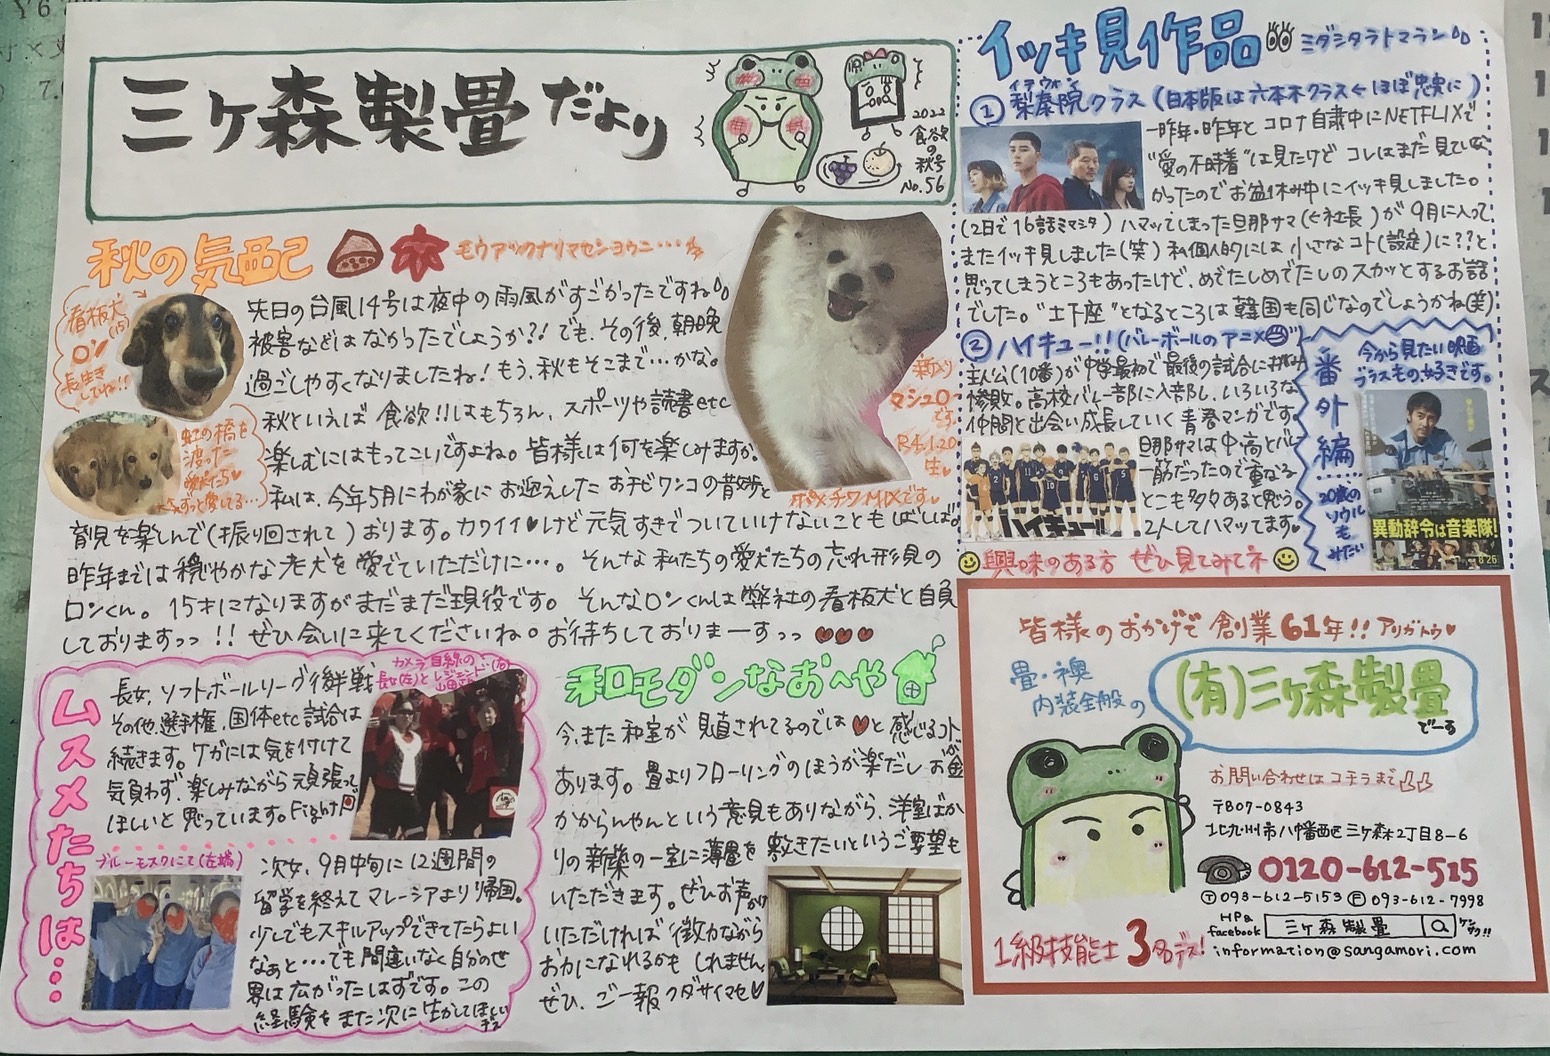 三ヶ森製畳だより
2022
食欲の秋号
No.56
秋の気配
モウアツクナリマセンヨウニ…
看板犬
ロン
長生きしてね!!
虹の橋を
渡った
先日の台風14号は夜中の雨風がすごかったですね
被害などはなかったでしょうか?! でも、その後、朝晩
過ごしやすくなりましたね! もう、秋もそこまで…かな。
秋といえば 食欲!!はもちろん、スポーツや読書etc
楽しむにはもってこいですよね。皆様は何を楽しみますか。
私は、今年5月にわが家に お迎えした おチビワンコの
育児を楽しんで(振り回されて)おります。カワイイ♥けど元気すぎてついていけないことも しばしば。
昨年までは穏やかな老犬を愛でていただけに…。そんな私たちの愛犬たちの忘れ形見の
ロンくん。15才になりますがまだまだ現役です。そんなロンくんは弊社の看板犬と自負
しておりますっっ!! ぜひ会いに来てくださいね。お待ちしておりまーすっっ ♥♥♥
マシュロ
です。
R4.1.20
生
ポメチワMIXです♥
ムスメたちは…
長女、ソフトボールリーグ後半戦
その他、選手権、国体etc試合は
続きます。ケガには気を付けて
気負わず、楽しみながら頑張って
ほしいと思っています。Fight!
カメラ目線の
ブルーモスクにて(左端)
次女、9月中旬に12週間の
留学を終えてマレーシアより帰国。
少しでもスキルアップできてたらよい
なぁと…でも間違いなく自分のせ
界は広がったはずです。この
経験をまた次に生かしてほしい
和モダンなおへや
今、また和室が見直されてるのでは♥と感じるコトが
あります。畳よりフローリングのほうが楽だし お金
かからんやんという意見もありながら、洋室ばか
りの新築の一室に薄畳を敷きたいというご要望も
いただきます。ぜひお声かけ
いただければ 微力ながら
お力になれるかも しれません。
ぜひ、ご一報クダサイマセ♥
イッキ見作品
ミダシタラトマラン
イテウォン
① 梨泰院クラス (日本版は六本木クラス←ほぼ忠実に)
一昨年・昨年とコロナ自粛中にNETFLIXで
"愛の不時着"は見たけど コレはまだ見てな
かったのでお盆休み中にイッキ見しました。
(2日で16話ミマシタ) ハマッてしまった旦那サマ(←社長)が9月に入って
またイッキ見しました(笑) 私個人的には 小さなコト(設定)に??と
思ってしまうところもあったけど、めでたしめでたしのスカッとするお話
でした。"土下座"となるところは韓国も同じなのでしょうかね(笑)
② ハイキュー!! (バレーボールのアニメ)
主人公(10番)が中学最初で最後の試合に
惨敗。高校バレー部に入部し、いろいろな
仲間と出会い成長していく 青春マンガです。
旦那サマは中高とバレー
一筋だったので重なる
とこも多々あると思う。
2人してハマッてます♥
ハイキュー!!
興味のある方 ぜひ見てみてネ
番外編…
今から見たい映画
ブラスもの、好きです。
20歳の
ソウルも
みたい
異動辞令は音楽隊!
8.26
皆様のおかげで 創業61年!! アリガトウ♥
畳・襖
内装全般の
(有)三ヶ森製畳
でーす
お問い合わせは コチラまで
〒807-0843
北九州市八幡西区三ヶ森2丁目8-6
0120-612-515
Ⓣ093-612-5153 Ⓕ093-612-7998
HP&
facebook
三ヶ森製畳
ケンサク!!
information@sangamori.com
1級技能士 3名デス!